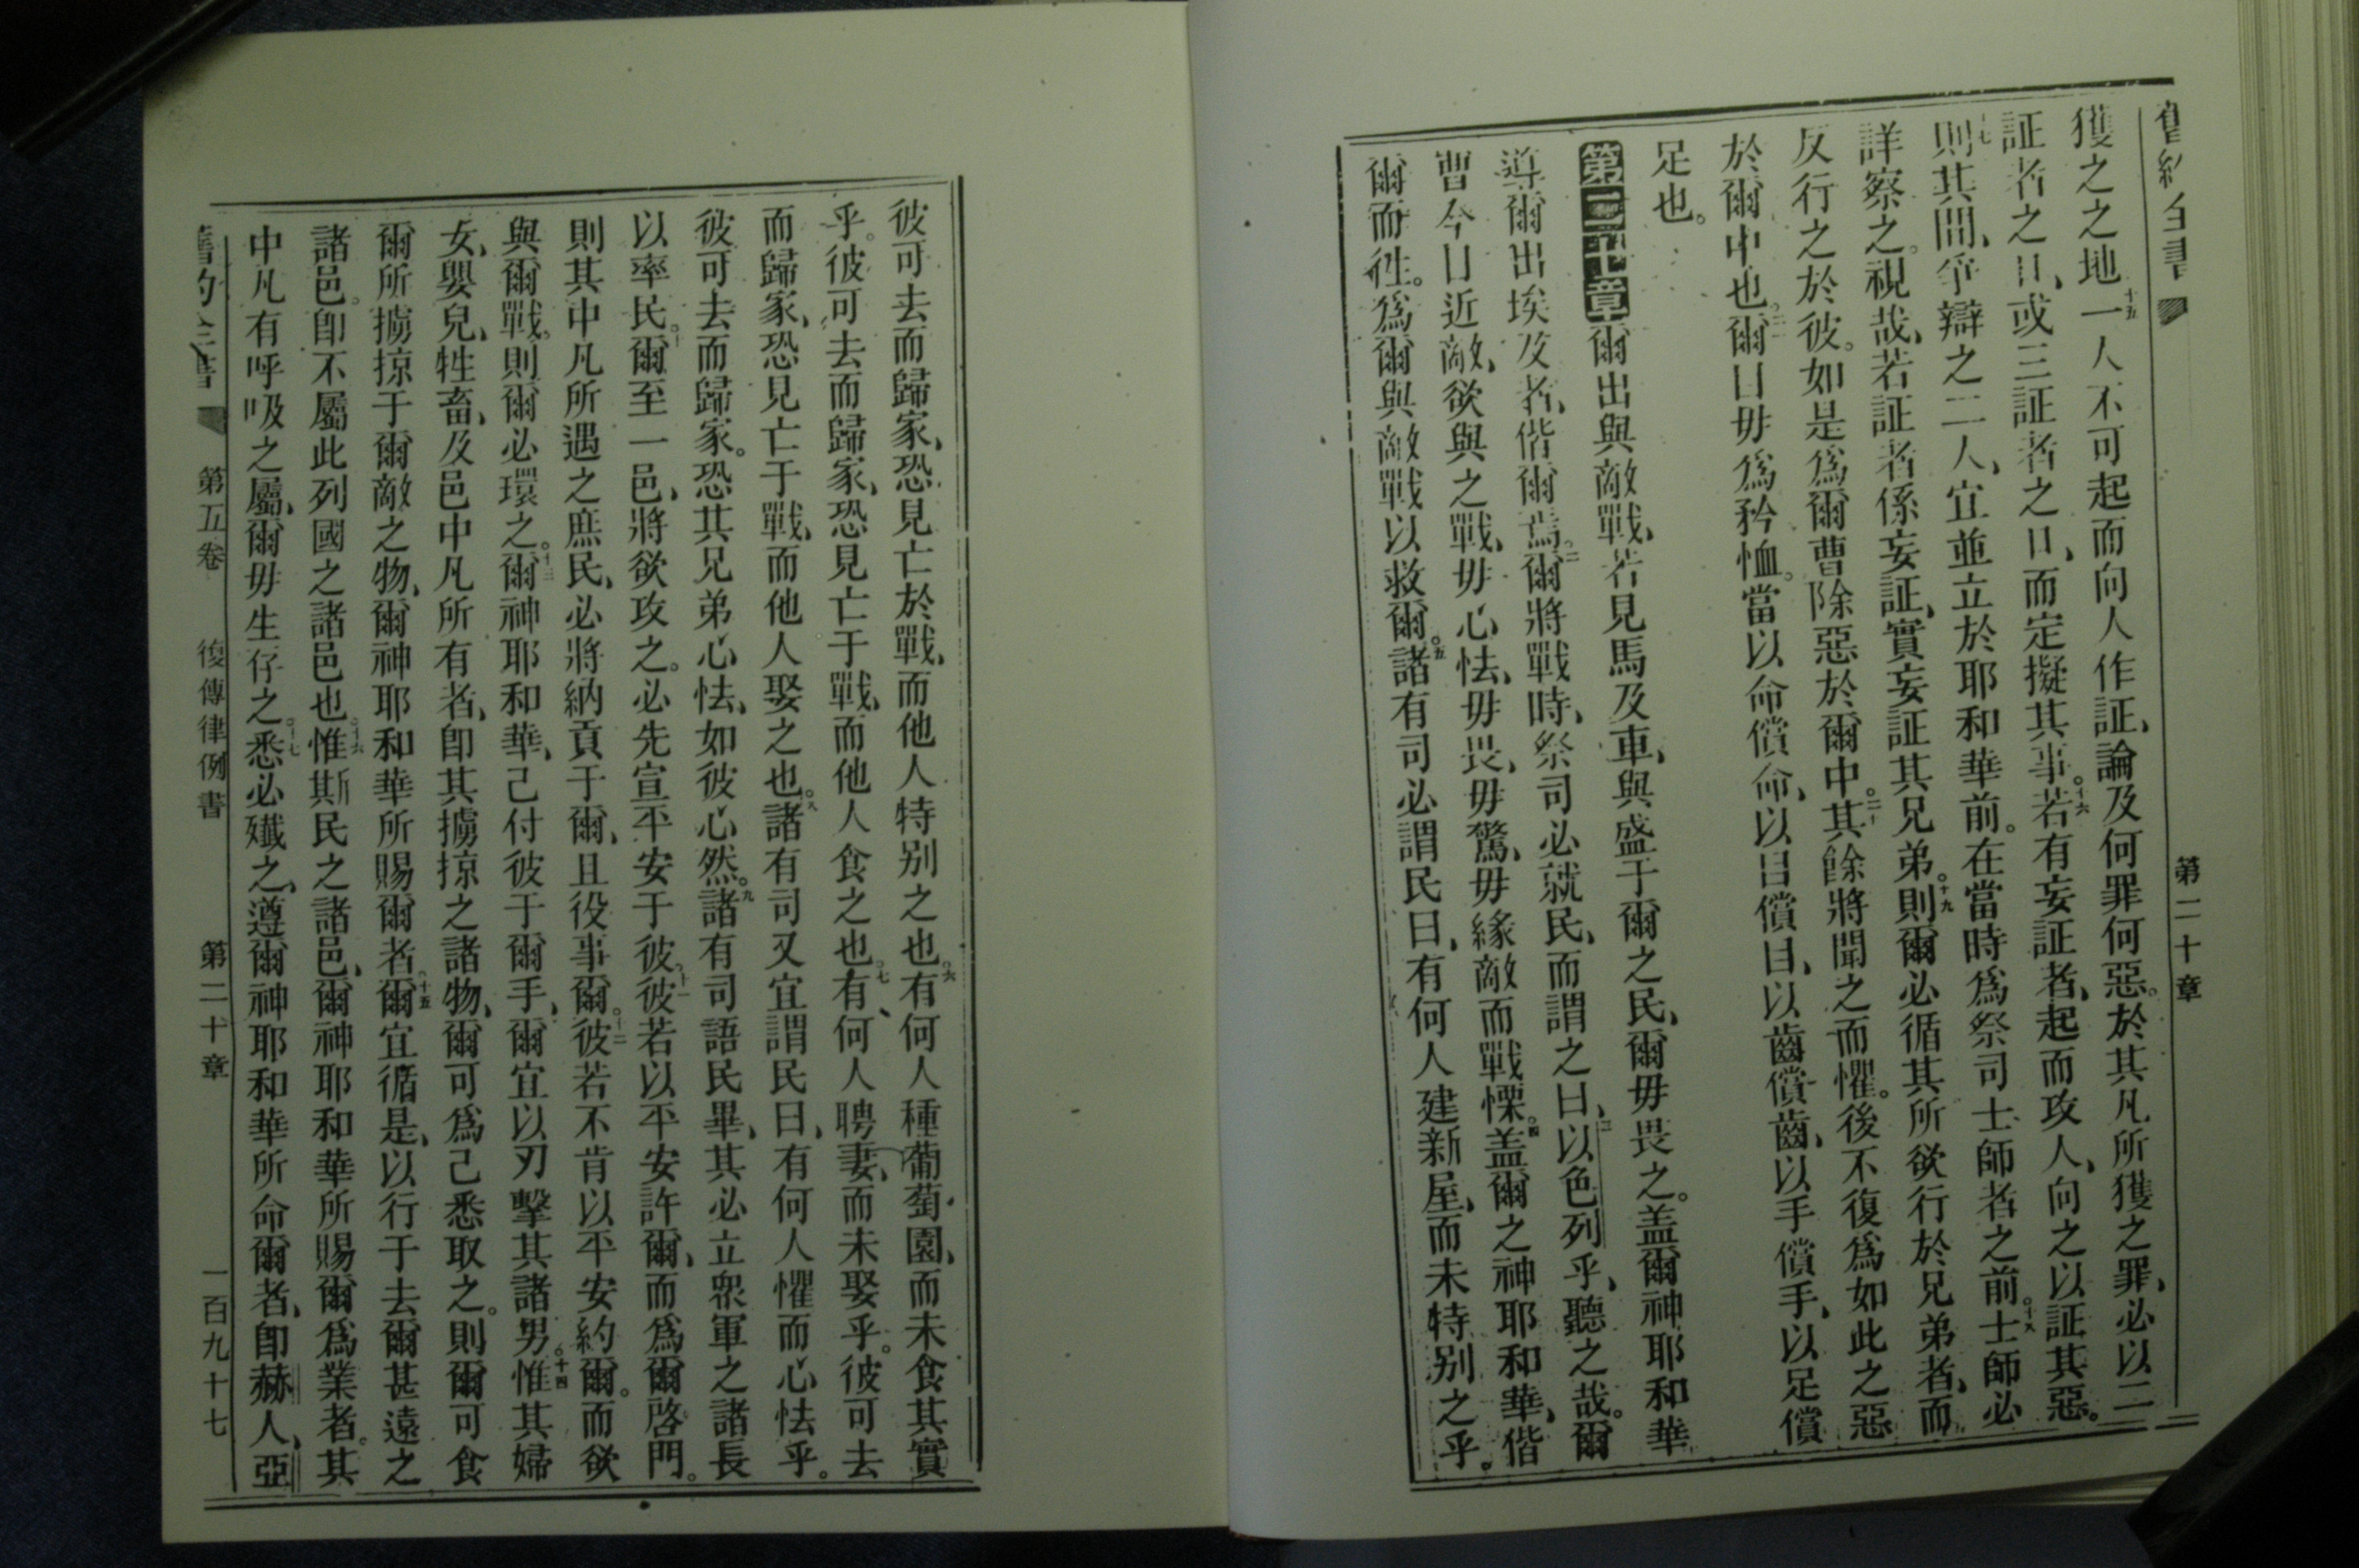 舊約全書
第二十章
獲之之地十五一人不可起而向人作証、論及何罪何惡。於其凡所獲之罪、必以二
証者之口、或三証者之口、而定擬其事。十六若有妄証者、起而攻人、向之以証其惡。
十七則其間、爭辯之二人、宜並立於耶和華前。在當時爲祭司士師者之前。十八士師必
詳察之。視哉、若証者係妄証、實妄証其兄弟。十九則爾必循其所欲行於兄弟者、而
反行之於彼。如是爲爾曹除惡於爾中。二十其餘將聞之而懼。後不復爲如此之惡
於爾中也。二一爾目毋爲矜恤。當以命償命、以目償目、以齒償齒、以手償手、以足償
足也。
第二十章爾出與敵戰、若見馬及車、與盛于爾之民、爾毋畏之。盖爾神耶和華
導爾出埃及者、偕爾焉。二爾將戰時、祭司必就民、而謂之曰、三以色列乎、聽之哉。爾
曹今日近敵、欲與之戰、毋心怯、毋畏、毋驚、毋緣敵而戰慄。四盖爾之神耶和華、偕
爾而徃。爲爾與敵戰以救爾。五諸有司必謂民曰、有何人建新屋、而未特别之乎。
彼可去而歸家、恐見亡於戰、而他人特别之也。六有何人種葡萄園、而未食其實
乎。彼可去而歸家、恐見亡于戰、而他人食之也。七有何人聘妻、而未娶乎。彼可去
而歸家、恐見亡于戰、而他人娶之也。八諸有司又宜謂民曰、有何人懼而心怯乎。
彼可去而歸家。恐其兄弟心怯、如彼心然。九諸有司語民畢、其必立衆軍之諸長
以率民。十爾至一邑、將欲攻之。必先宣平安于彼。十一彼若以平安許爾、而爲爾啓門。
則其中凡所遇之庶民、必將納貢于爾、且役事爾。十二彼若不肯以平安約爾。而欲
與爾戰。則爾必環之。十三爾神耶和華、己付彼于爾手、爾宜以刃擊其諸男。十四惟其婦
女、嬰兒、牲畜、及邑中凡所有者、卽其擄掠之諸物、爾可爲己悉取之。則爾可食
爾所擄掠于爾敵之物、爾神耶和華所賜爾者。十五爾宜循是、以行于去爾甚遠之
諸邑。卽不屬此列國之諸邑也。十六惟斯民之諸邑、爾神耶和華所賜爾爲業者。其
中凡有呼吸之屬、爾毋生存之。十七悉必殲之、遵爾神耶和華所命爾者、卽赫人、亞
舊約全書
第五卷 復傳律例書 第二十章 一百九十七